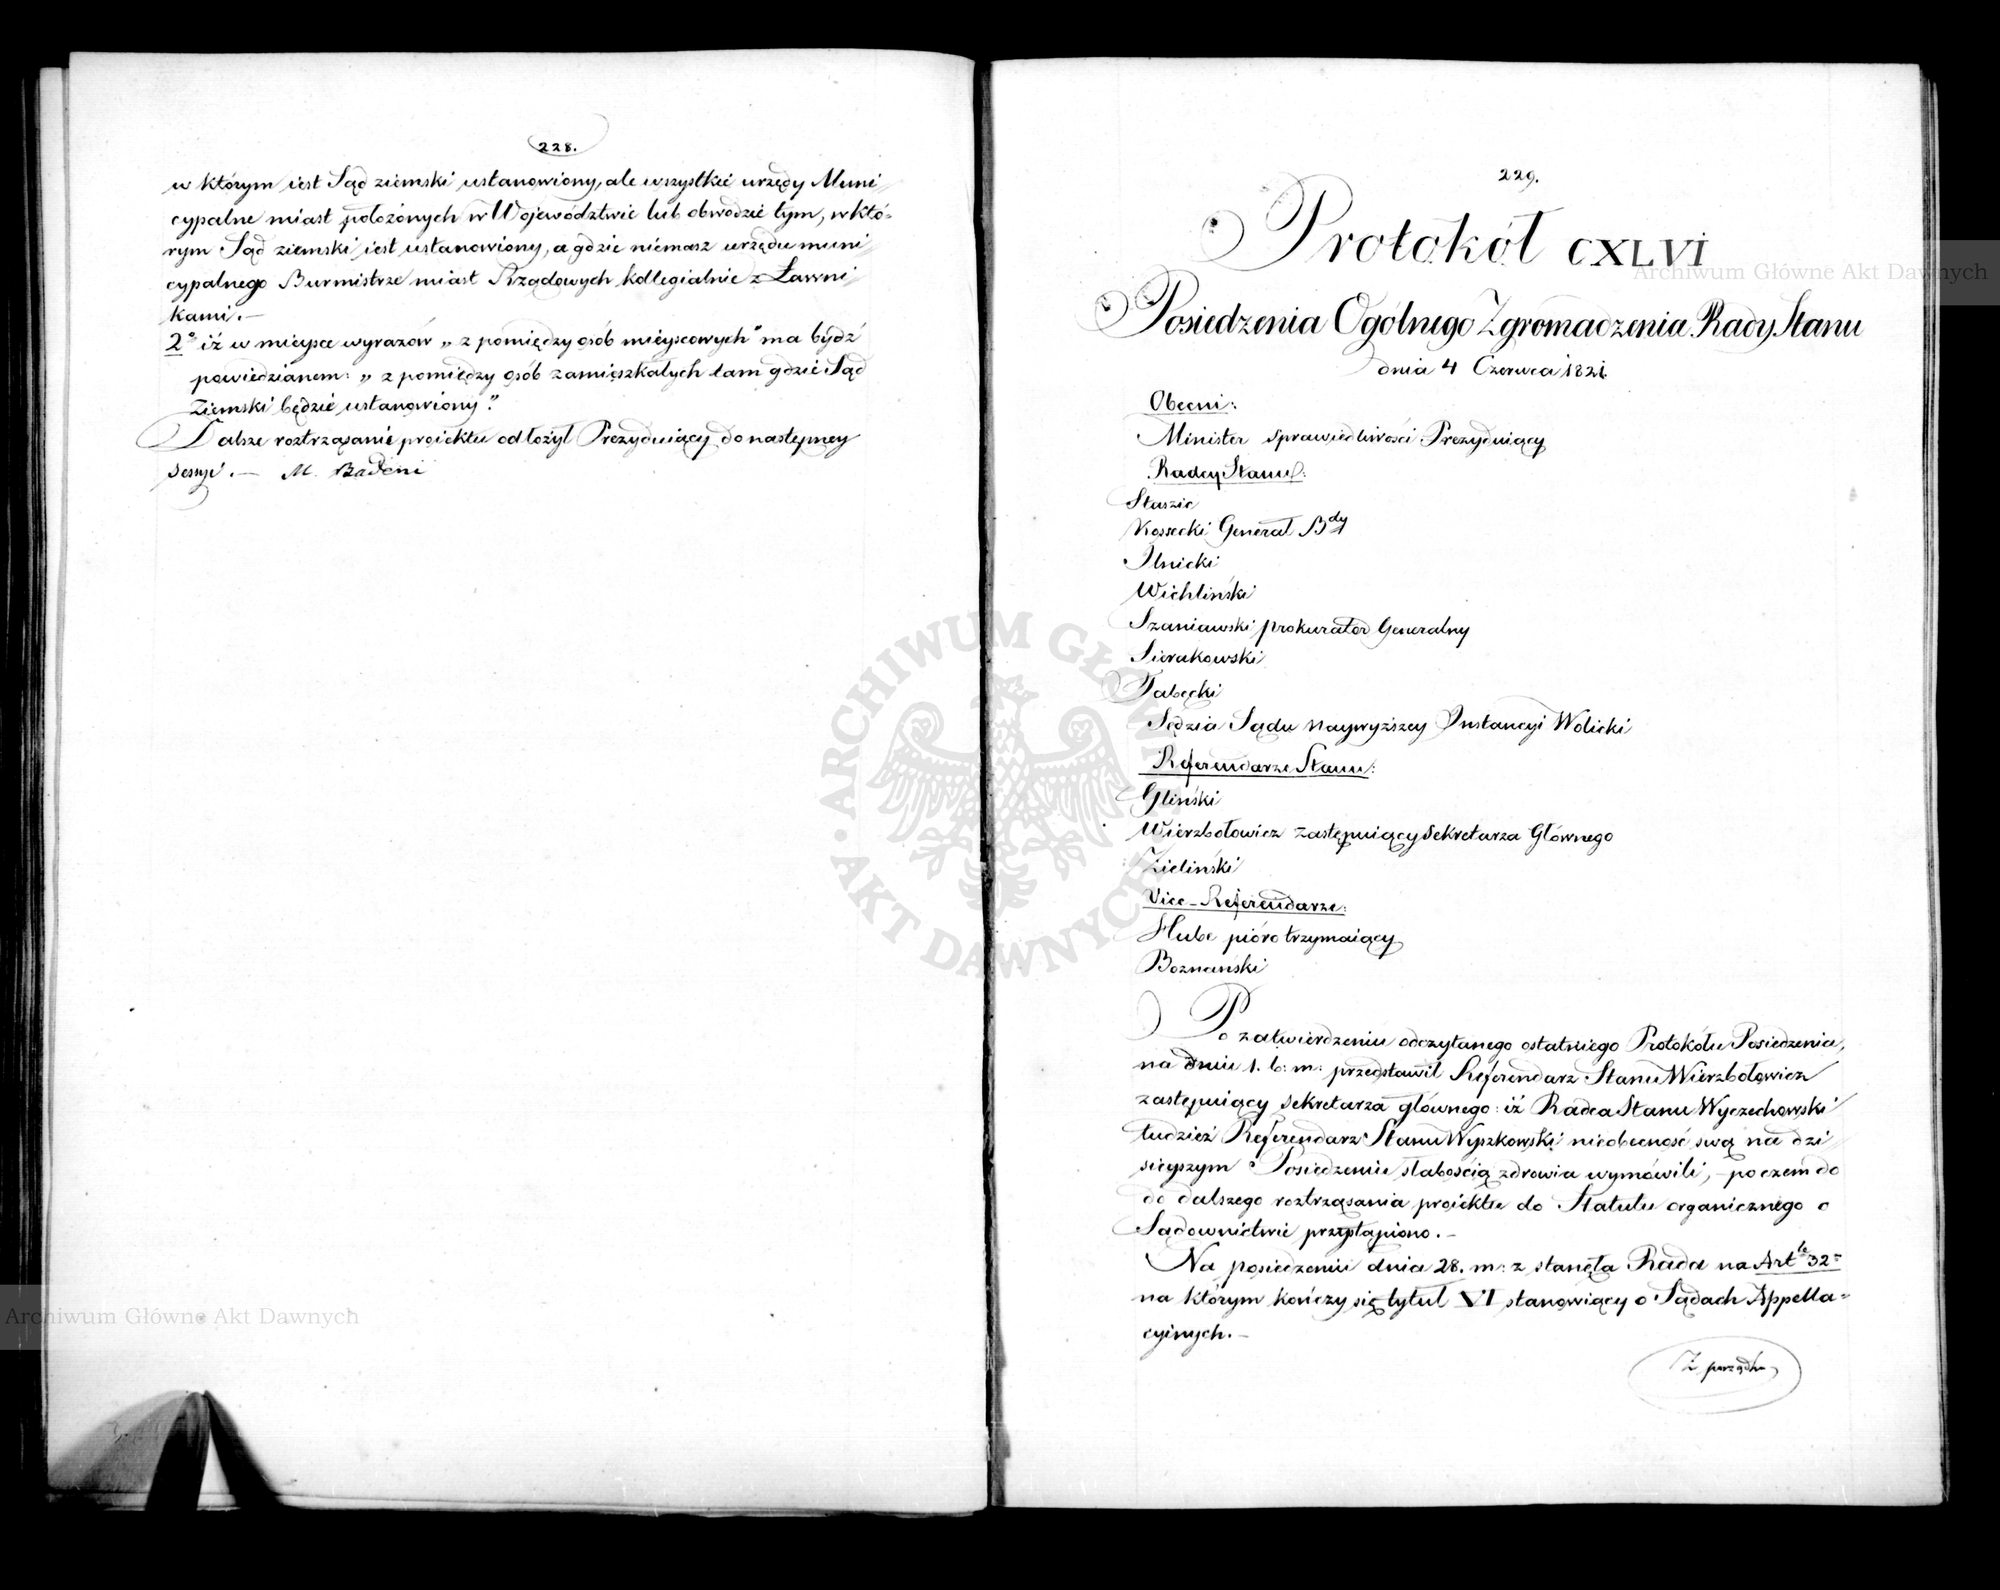 228.
w którym iest Sąd ziemski ustanowiony, ale wszystkie urzędy Muni
cypalne miast położonych w Województwie lub obwodzie tym, w któ-
rym Sąd ziemski iest ustanowiony, a gdzie niemasz urzędu muni
cypalnego Burmistrze miast Rządowych kollegialnie z Ławni
kami.—
2° iż w mieysce wyrazów „z pomiędzy osób mieyscowych" ma bydź
powiedzianem: „z pomiędzy osób zamieszkałych tam gdzie Sąd
Ziemski będzie ustanowiony".
Dalsze roztrząsanie proiektu odłożył Prezyduiący do następney
sessyi.— M. Badeni
229.
Protokół CXLVI
Posiedzenia Ogólnego Zgromadzenia Rady Stanu
dnia 4 Czerwca 1821.
Obecni:
Minister Sprawiedliwości Prezyduiący
Radcy Stanu:
Staszic
Kossecki Generał Bdy
Ilnicki
Wichliński
Szaniawski prokurator Generalny
Sierakowski
Tabęcki
Sędzia Sądu Naywyższey Instancyi Wolicki
Referendarze Stanu:
Gliński
Wierzbołowicz Zastępuiący Sekretarza Głównego
Zieliński
Vice-Referendarze:
Hube pióro trzymaiący
Boznański
Po zatwierdzeniu odczytanego ostatniego Protokółu Posiedzenia,
na dniu 1. b: m: przedstawił Referendarz Stanu Wierzbołowicz
zastępuiący sekretarza głównego: iż Radca Stanu Wyczechowski
tudzież Referendarz Stanu Wyszkowski nieobecność swą na dzi
sieyszym Posiedzeniu słabością zdrowia wymówili, – poczem do
do dalszego roztrząsania proiektu do Statutu organicznego o
Sądownictwie przystąpiono.–
Na posiedzeniu dnia 28. m: z stanęła Rada na Artle 32=
na którym kończy się tytuł VI stanowiący o Sądach Appella=
cyinych.–
Z porządku
Archiwum Główne Akt Dawnych
Archiwum Główne Akt Dawnych
ARCHIWUM GŁÓWNE AKT DAWNYCH